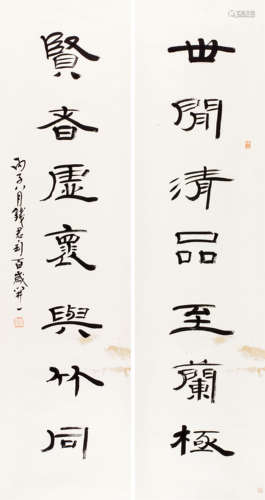 世閒清品至蘭極
賢者虛褱與竹同
丙子八月錢君匋百歲